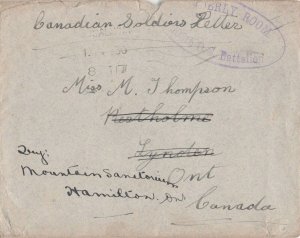 Canadian Soldiers Letter
ORLY ROOM
Battalion
Miss M. Thompson
Westholme
Lynden
Ont
Mountain Sanitorium
Hamilton. On
Canada